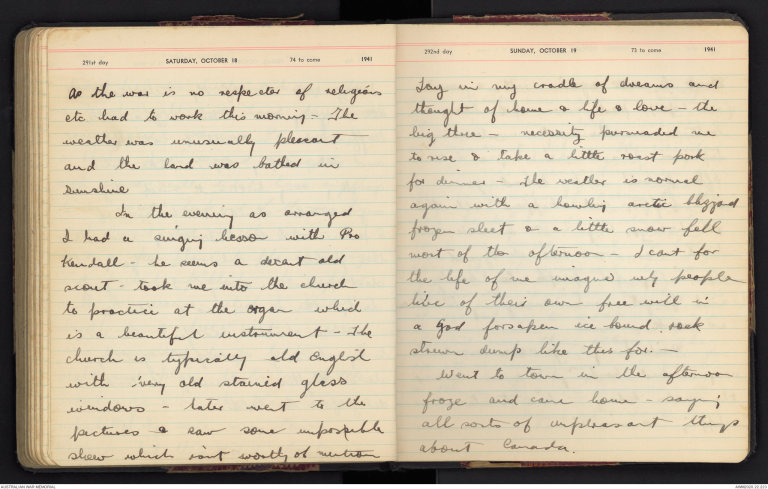 291st day SATURDAY, OCTOBER 18 74 to come 1941
As the war is no respector of religions
etc had to work this morning - The
weather was unusually pleasant
and the land was bathed in
sunshine
In the evening as arranged
I had a singing lesson with Pro
Kendall - he seems a decent old
scout - took me into the church
to practice at the organ which
is a beautiful instrument - The
church is typically old English
with very old stained glass
windows - later went to the
pictures & saw some impossible
show which isnt worthy of mention
292nd day SUNDAY, OCTOBER 19 73 to come 1941
Lay in my cradle of dreams and
thought of home & life & love - the
big three - necessity pursuaded me
to rise & take a little roast pork
for dinner - The weather is normal
again with a howling arctic blizzard
frozen sleet & a little snow fell
most of the afternoon - I cant for
the life of me imagine why people
live of their own free will in
a God forsaken ice bound rock
strewn dump like this for. -
Went to town in the afternoon
froze and came home - saying
all sorts of unpleasant things
about Canada.
AUSTRALIAN WAR MEMORIAL
AWM2020.22.223